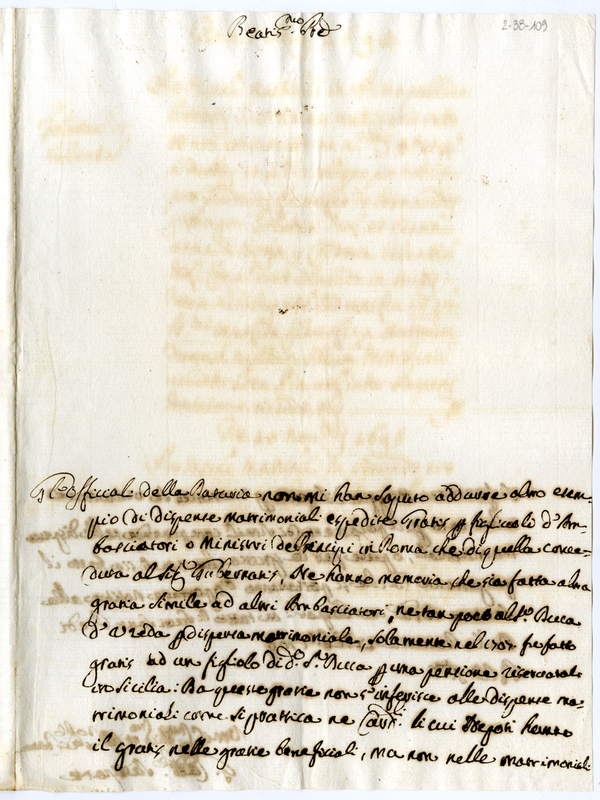 Beatis.mo Pre
2-38-109
Gl'Officiali della Dataria non mi han saputo addurre altro esem-
pio di dispense matrimoniali espedite Gratis p figliuoli d'Am-
basciatori o Ministri de Principi in Roma che di quella conce-
duta al Sig.r Gubernatis, Ne hanno memoria che sia fatta altra
gratia simile ad altri Ambasciatori, ne tan poco al S.r Duca
d'Uzeda p dispensa matrimoniale, solamente nel 1707 fu fatto
gratis ad un figliolo di d.o S.r Duca p una pensione riservatali
in Sicilia: Da queste gratie non s'inferisce alle dispense ma-
trimoniali come si prattica ne Card.li li cui Nepoti hanno
il gratis nelle gratie beneficiali, ma non nelle matrimoniali